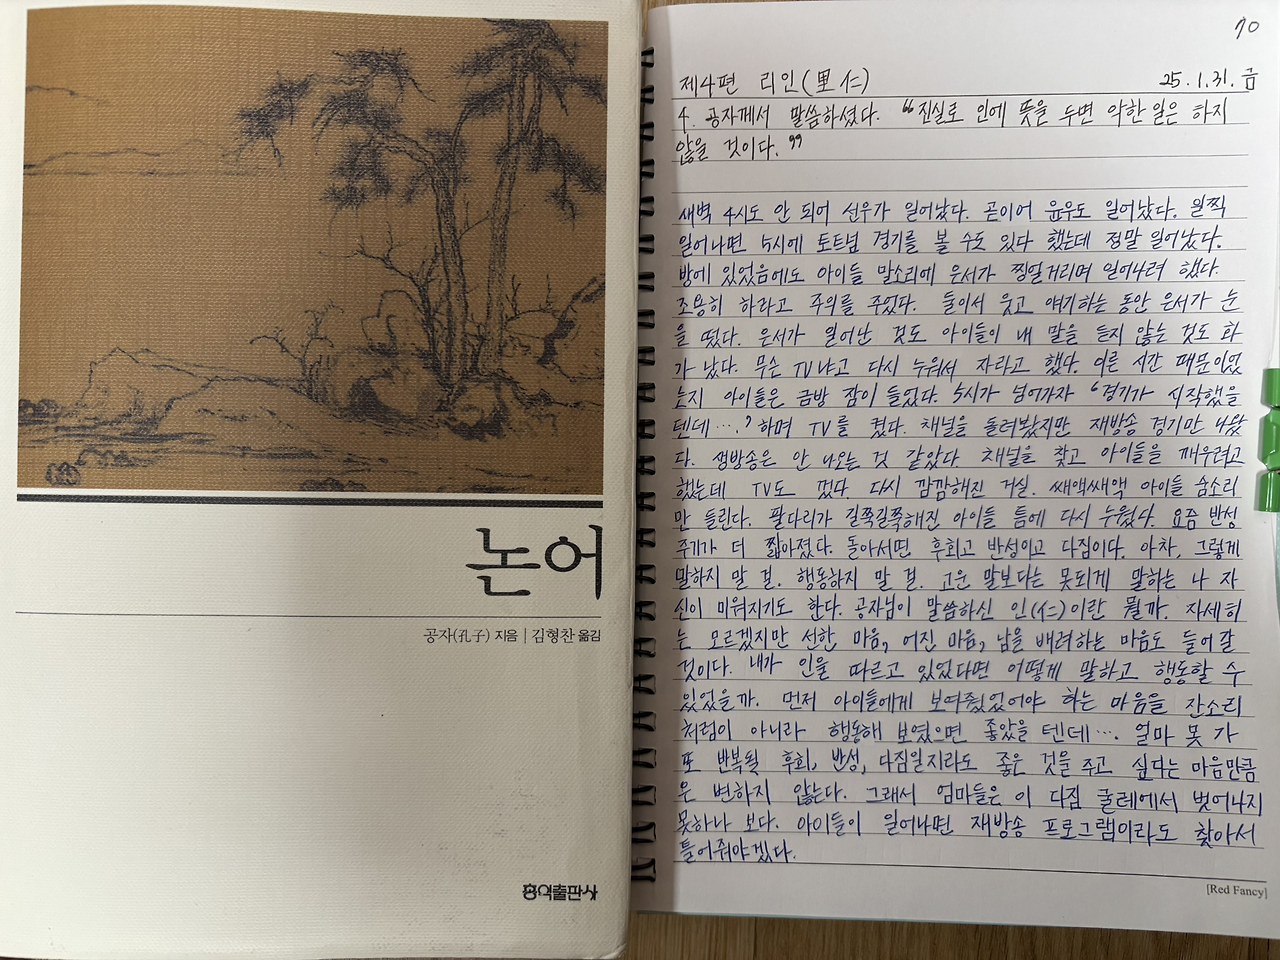 논어
공자(孔子) 지음 | 김형찬 옮김
홍익출판사
70
제4편 리인(里仁) 25.1.31.금
4. 공자께서 말씀하셨다. "진실로 인에 뜻을 두면 악한 일은 하지
않을 것이다."
새벽 4시도 안 되어 선우가 일어났다. 곧이어 윤우도 일어났다. 일찍
일어나면 5시에 토트넘 경기를 볼 수도 있다 했는데 정말 일어났다.
방에 있었음에도 아이들 말소리에 은서가 찡얼거리며 일어나려 했다.
조용히 하라고 주의를 주었다. 둘이서 웃고 얘기하는 동안 은서가 눈
을 떴다. 은서가 일어난 것도 아이들이 내 말을 듣지 않는 것도 화
가 났다. 무슨 TV냐고 다시 누워서 자라고 했다. 이른 시간 때문이었
는지 아이들은 금방 잠이 들었다. 5시가 넘어가자 '경기가 시작했을
텐데….' 하며 TV를 켰다. 채널을 돌려봤지만 재방송 경기만 나왔
다. 생방송은 안 나오는 것 같았다. 채널을 찾고 아이들을 깨우려고
했는데 TV도 껐다. 다시 깜깜해진 거실. 쌔액쌔액 아이들 숨소리
만 들린다. 팔다리가 길쭉길쭉해진 아이들 틈에 다시 누웠다. 요즘 반성
주기가 더 짧아졌다. 돌아서면 후회고 반성이고 다짐이다. 아차, 그렇게
말하지 말 걸. 행동하지 말 걸. 고운 말보다는 못되게 말하는 나 자
신이 미워지기도 한다. 공자님이 말씀하신 인(仁)이란 뭘까. 자세히
는 모르겠지만 선한 마음, 어진 마음, 남을 배려하는 마음도 들어갈
것이다. 내가 인을 따르고 있었다면 어떻게 말하고 행동할 수
있었을까. 먼저 아이들에게 보여줬었어야 하는 마음을 잔소리
처럼이 아니라 행동해 보였으면 좋았을 텐데…. 얼마 못 가
또 반복될 후회, 반성, 다짐일지라도 좋은 것을 주고 싶다는 마음만큼
은 변하지 않는다. 그래서 엄마들은 이 다짐 굴레에서 벗어나지
못하나 보다. 아이들이 일어나면 재방송 프로그램이라도 찾아서
틀어줘야겠다.
[Red Fancy]